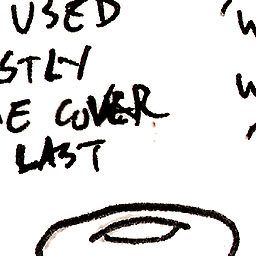 USED
STLY
E COVER
LAST